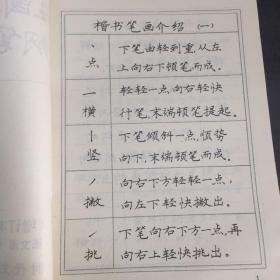 楷书笔画介绍 (一)
丶
点
下笔由轻到重,从左
上向右下顿笔而成。
一
横
轻轻一点,向右轻快
行笔,末端顿笔提起。
丨
竖
下笔倾斜一点,慎势
向下,末端顿笔而成。
丿
撇
向右下方轻轻一点,
向左下轻快撇出。
㇀
挑
下笔向右下方一点,再
向右上轻快挑出。